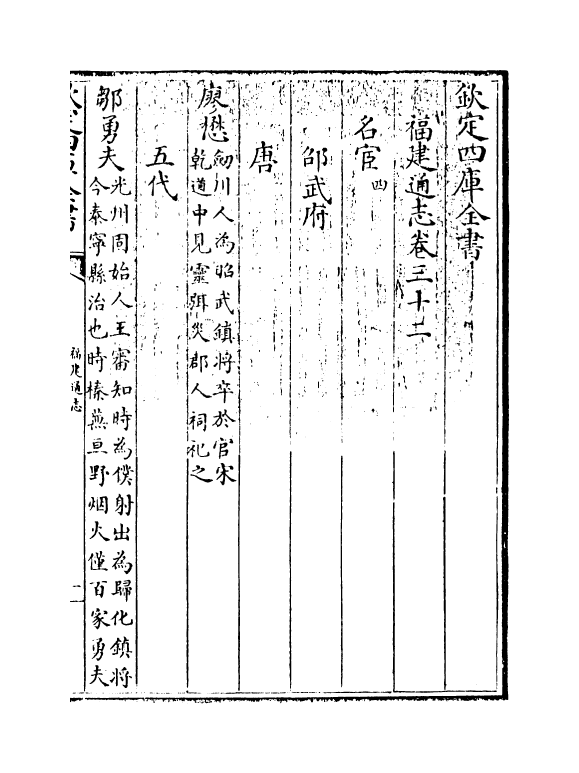 欽定四庫全書
福建通志卷三十二
名宦四
邵武府
唐
廖懋劒川人為昭武鎮將卒於官宋
乾道中見靈弭災郡人祠祀之
五代
鄒勇夫光州固始人王審知時為僕射出為歸化鎮將
今泰寧縣治也時榛蕪亘野烟火僅百家勇夫
福建通志